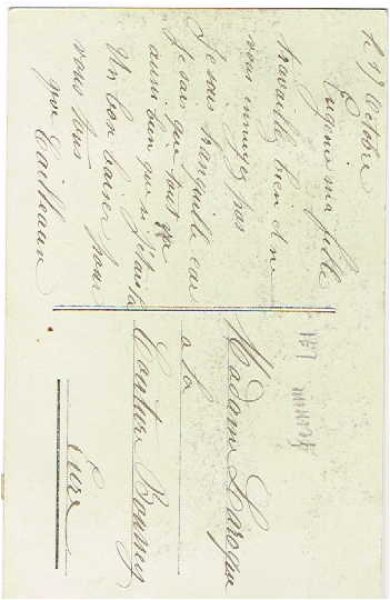 le 7 Octobre
Eugénie ma fille
travaillez bien et ne
vous ennuyez pas
Je suis tranquille car
Je sais que tout ira
aussi bien que si j'étais là
Un bon baiser pour
vous tous
Cailleaux
Madame Laroque
a la
Eure